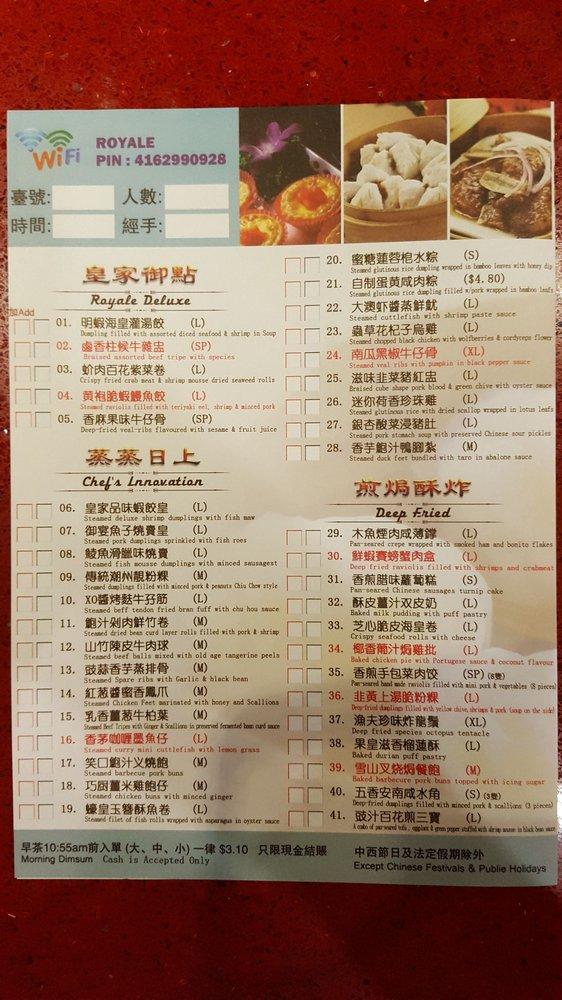 WiFi
ROYALE
PIN : 4162990928
臺號:
人數:
時間:
經手:
皇家御點
Royale Deluxe
加Add
01. 明蝦海皇灌湯餃 (L)
Dumpling filled with assorted diced seafood & shrimp in Soup
02. 鹵香柱候牛雜盅 (SP)
Braised assorted beef tripe with species
03. 蚧肉百花紫菜卷 (L)
Crispy fried crab meat & shrimp mousse dried seaweed rolls
04. 黄袍脆蝦鰻魚餃 (L)
Steamed raviolis filled with teriyaki eel, shrimp & minced pork
05. 香麻果味牛仔骨 (SP)
Deep-fried veal-ribs flavoured with sesame & fruit juice
蒸蒸日上
Chef's Innovation
06. 皇家品味蝦餃皇 (L)
Steamed deluxe shrimp dumplings with fish maw
07. 御宴魚子燒賣皇 (L)
Steamed pork dumplings sprinkled with fish roes
08. 鯪魚滑臘味燒賣 (L)
Steamed fish mousse dumplings with minced sausagest
09. 傳統潮州靚粉粿 (M)
Steamed dumplings filled with minced pork & peanuts Chiu Chow style
10. XO醬烤麩牛孖筋 (L)
Steamed beef tendon fried bran fuff with chu hou sauce
11. 鮑汁剁肉鮮竹卷 (M)
Steamed dried bean curd layer rolls filled with pork & shrimp
12. 山竹陳皮牛肉球 (M)
Steamed beef balls mixed with old age tangerine peels
13. 豉蒜香芋蒸排骨 (M)
Steamed Spare ribs with Garlic & black bean
14. 紅葱醬蜜香鳳爪 (M)
Steamed Chicken Feet marinated with honey and Scallions
15. 乳香薑葱牛柏葉 (M)
Steamed Beef Tripes with Ginger & Scallions in preserved fermented bean curd sauce
16. 香茅咖喱墨魚仔 (L)
Steamed curry mini cuttlefish with lemon grass
17. 笑口鮑汁乂燒飽 (M)
Steamed barbecue pork buns
18. 巧厨薑米雞飽仔 (M)
Steamed chicken buns with minced ginger
19. 蠔皇玉簪酥魚卷 (L)
Steamed filet of fish rolls wrapped with asparagus in oyster sauce
20. 蜜糖蓮蓉枧水粽 (S)
Steamed glutinous rice dumpling wrapped in bamboo leaves with honey dip
21. 自制蛋黄咸肉粽 ($4.80)
Steamed glutinous rice dumpling filled w/pork wrapped in bamboo leafs
22. 大澳虾醬蒸鮮魷 (L)
Steamed cuttlefish with shrimp paste sauce
23. 蟲草花杞子烏雞 (L)
Steamed chopped black chicken with wolfberries & cordyceps flower
24. 南瓜黑椒牛仔骨 (XL)
Steamed veal ribs with pumpkin in black pepper sauce
25. 滋味韭菜豬紅盅 (L)
Braised cube shape pork blood & green chive with oyster sauce
26. 迷你荷香珍珠雞 (L)
Steamed glutinous rice with dried scallop wrapped in lotus leafs
27. 銀杏酸菜浸豬肚 (L)
Steamed pork stomach soup with preserved Chinese sour pickles
28. 香芋鮑汁鴨腳紮 (M)
Steamed duck feet bundled with taro in abalone sauce
煎焗酥炸
Deep Fried
29. 木魚煙肉咸薄鐣 (L)
Pan-seared crepe wrapped with smoked ham and bonito flakes
30. 鮮蝦賽螃蟹肉盒 (L)
Deep fried raviolis filled with shrimps and crabmeat
31. 香煎腊味蘿蔔糕 (S)
Pan-seared Chinese sausages turnip cake
32. 酥皮薑汁双皮奶 (L)
Baked milk pudding with puff pastry
33. 芝心脆皮海皇卷 (L)
Crispy seafood rolls with cheese
34. 椰香葡汁焗雞批 (L)
Baked chicken pie with Portugese sauce & coconut flavour
35. 香煎手包菜肉饺 (SP) (8隻)
Pan-seared hand made raviolis filled with mini pork & vegetables (8 pieces)
36. 韭黃上湯脆粉粿 (L)
Deep-fried dumplings filled with yellow chive, shrimps & pork (soup on the side)
37. 漁夫珍味炸龍鬚 (XL)
Deep fried species octopus tentacle
38. 果皇滋香榴蓮酥 (L)
Baked durian puff pastry
39. 雪山叉烧焗餐飽 (M)
Baked barbecure pork buns topped with icing sugar
40. 五香安南咸水角 (S) (3隻)
Deep-fried dumplings filled with minced pork & scallions (3 pieces)
41. 豉汁百花煎三寶 (L)
A combo of pan-seared tofu, eggplant & green pepper stuffed with shrimp mousse in black bean sauce
早茶10:55am前入單 (大、中、小) 一律 $3.10 只限現金結賬
Morning Dimsum Cash is Accepted Only
中西節日及法定假期除外
Except Chinese Festivals & Publie Holidays